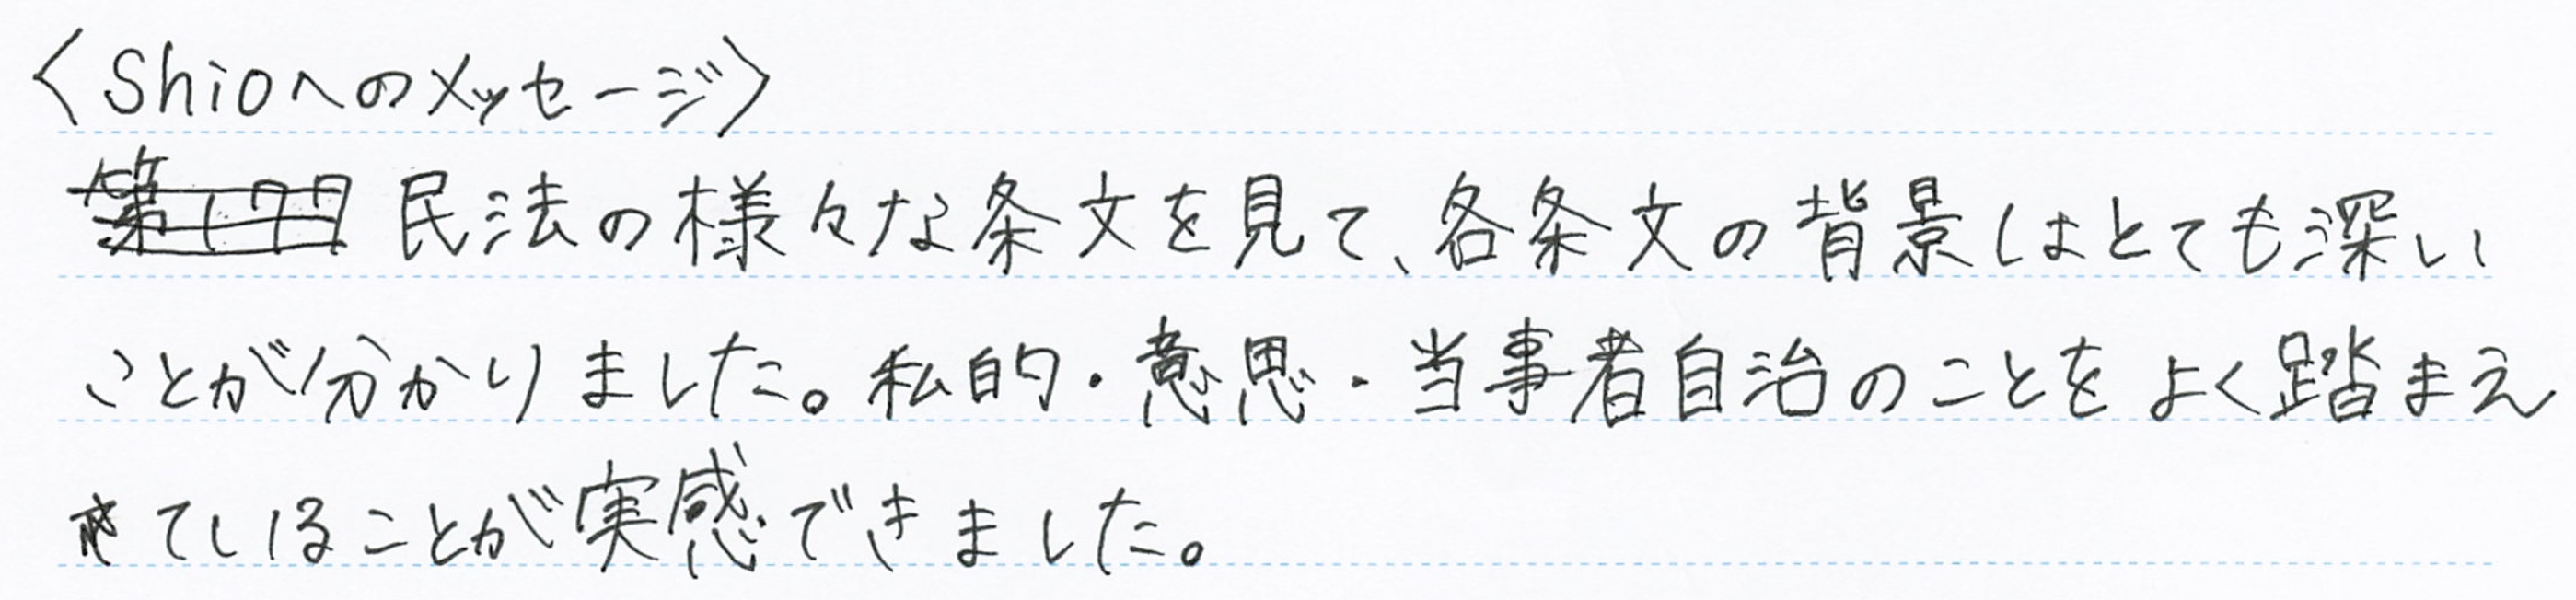 〈Shioへのメッセージ〉
民法の様々な条文を見て、各条文の背景はとても深い
ことが分かりました。私的・意思・当事者自治のことをよく踏まえ
きていることが実感できました。